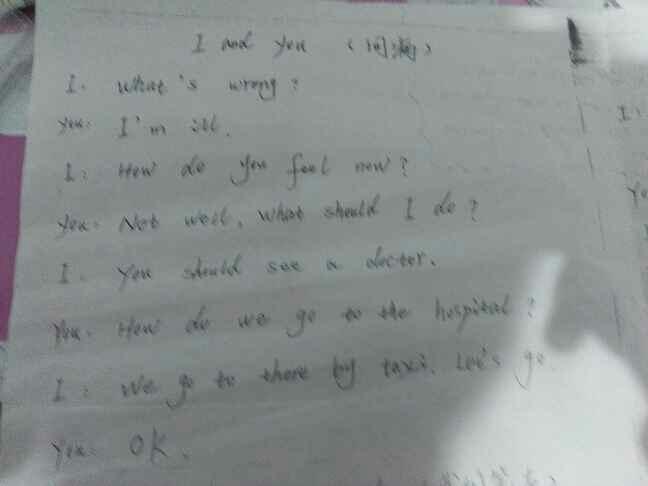 I and you (问病)
I: What's wrong?
You: I'm ill.
I: How do you feel now?
You: Not well, what should I do?
I: You should see a doctor.
You: How do we go to the hospital?
I: We go to there by taxi. Let's go.
You: OK.
I: